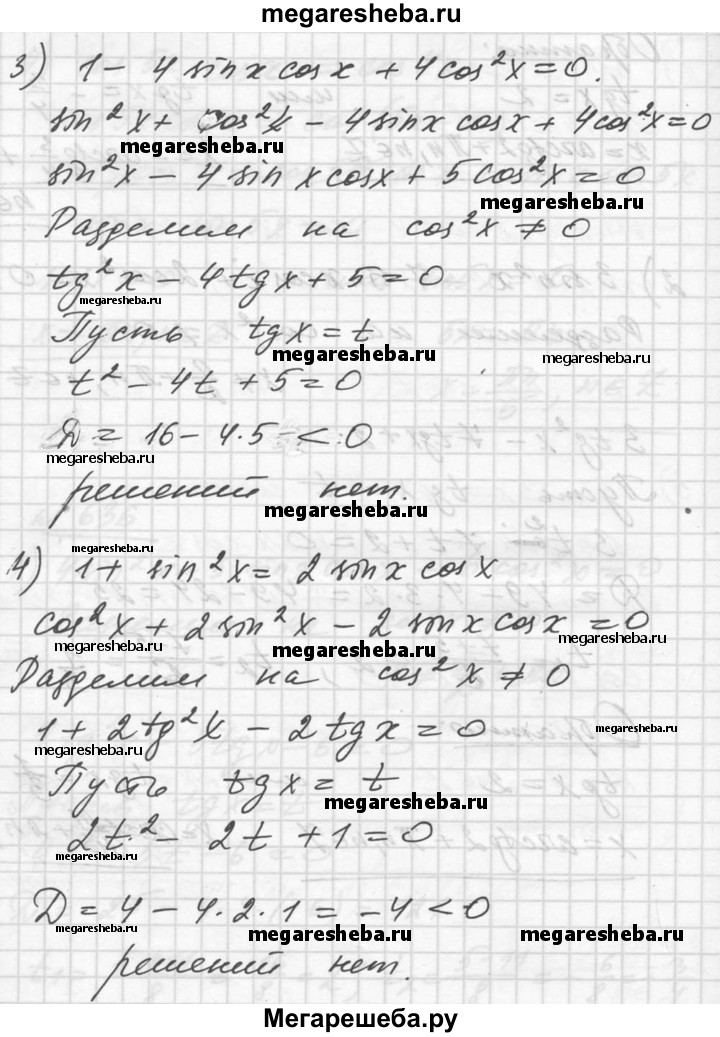 megaresheba.ru
3) 1 - 4 sin x cos x + 4 cos²x = 0.
sin²x + cos²x - 4 sin x cos x + 4 cos²x = 0
megaresheba.ru
sin²x - 4 sin x cos x + 5 cos²x = 0
megaresheba.ru
Разделим на cos²x ≠ 0
tg²x - 4 tg x + 5 = 0
megaresheba.ru
Пусть tg x = t
megaresheba.ru megaresheba.ru
t² - 4t + 5 = 0
D = 16 - 4·5 < 0
megaresheba.ru
решений нет.
megaresheba.ru
megaresheba.ru
4) 1 + sin²x = 2 sin x cos x
cos²x + 2 sin²x - 2 sin x cos x = 0
megaresheba.ru megaresheba.ru
Разделим на cos²x ≠ 0
1 + 2 tg²x - 2 tg x = 0
megaresheba.ru megaresheba.ru
Пусть tg x = t
megaresheba.ru
2t² - 2t + 1 = 0
megaresheba.ru megaresheba.ru
D = 4 - 4·2·1 = -4 < 0
megaresheba.ru megaresheba.ru megaresheba.ru
решений нет.
Мегарешеба.ру